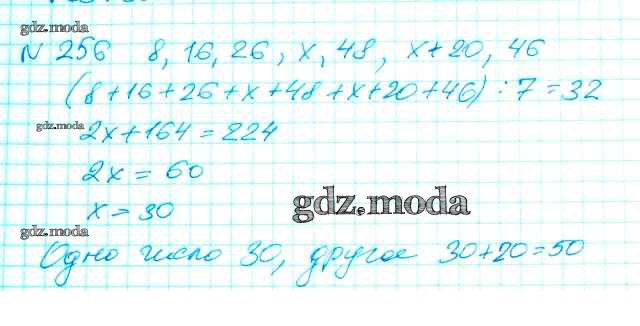 gdz.moda
N 256 8, 16, 26, x, 48, x+20, 46
(8+16+26+x+48+x+20+46) : 7 = 32
gdz.moda
2x+164 = 224
2x = 60
x = 30
gdz.moda
gdz.moda
Одно число 30, другое 30+20=50